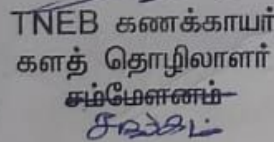 TNEB கணக்காயர்
களத் தொழிலாளர்
சம்மேளனம்